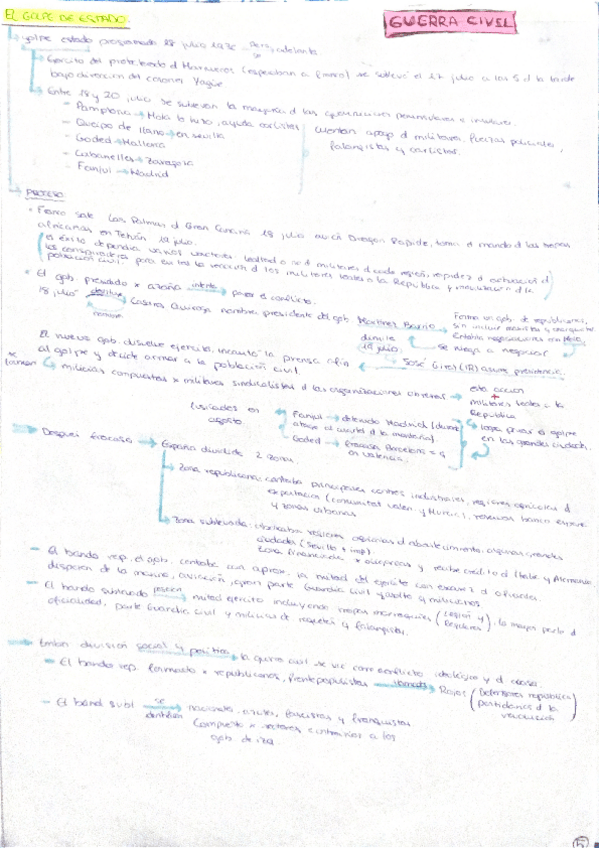 EL GOLPE DE ESTADO
GUERRA CIVIL
golpe estado programado 18 julio 1936. Pero, adelanta
Ejercito del protectorado d Marruecos se sublevó el 17 julio a las 5 d la tarde
bajo dirección del coronel Yagüe
Entre 18 y 20 julio se sublevan la mayoría d las guarniciones peninsulares e insulares.
- Pamplona → Mola lo hizo, ayuda carlistas
- Queipo de llano → en sevilla
- Goded → Mallorca
- Cabanelles → Zaragoza
- Fanjul → Madrid
Cuentan apoyo d militares, fuerzas policiales,
falangistas y carlistas.
PROCESO
• Franco sale Las Palmas d Gran Canaria 18 julio avión Dragon Rapide, toma el mando d las tropas
africanas en Tetuán 19 julio.
El éxito dependía varios factores: lealtad o no d militares d cada región, rapidez d actuación d
los conspiradores para evitar la reacción d los militares leales a la República y movilización d la
población civil.
• El gob. presidido x azaña intenta parar el conflicto.
18 julio destituye Casares Quiroga nombra presidente del gob. Martínez Barrio
dimite
19 julio
Forma un gob. de republicanos,
sin incluir
Entabla negociaciones con Mola,
se niega a negociar
José Giral (IR) asume presidencia.
El nuevo gob. disuelve ejercito, incauta la prensa afín
al golpe y decide armar a la población civil.
se forman milicias compuestas x militares sindicalistas d las organizaciones obreras
esta acción
+
militares leales = la
República
logra parar el golpe
en las grandes ciudades.
fusilados en
agosto.
Fanjul → detenido Madrid
Goded → fracasa Barcelona =
en Valencia.
Después fracaso → España dividida 2 zonas.
Zona republicana: controlaba principales centros industriales, regiones agrícolas d
exportación (comunidad valen. y Murcia), reservas banco españa
y zonas urbanas
Zona sublevada: controlaba regiones agrícolas d abastecimiento, algunas grandes
ciudades (Sevilla + imp).
y recibe crédito d Italia y Alemania.
- El bando rep. el gob. contaba con aprox. la mitad del ejercito con escasez d oficiales.
disponen de la marina, aviación, gran parte Guardia Civil y asalto y milicianos.
- El bando sublevado poseen mitad ejercito incluyendo tropas marroquíes (Legión y Regulares), la mayor parte d
oficialidad, parte Guardia Civil y milicias de requetés y falangistas.
división social y política, la guerra civil se ve como conflicto ideológico y d clases.
- El bando rep. formado x republicanos, frentepopulistas llamados Rojos (Defensores república / partidarios d la revolución)
- El band subl se identifica nacionales, azules, fascistas y franquistas
Compuesto x sectores contrarios a los
gob. de izq.
5